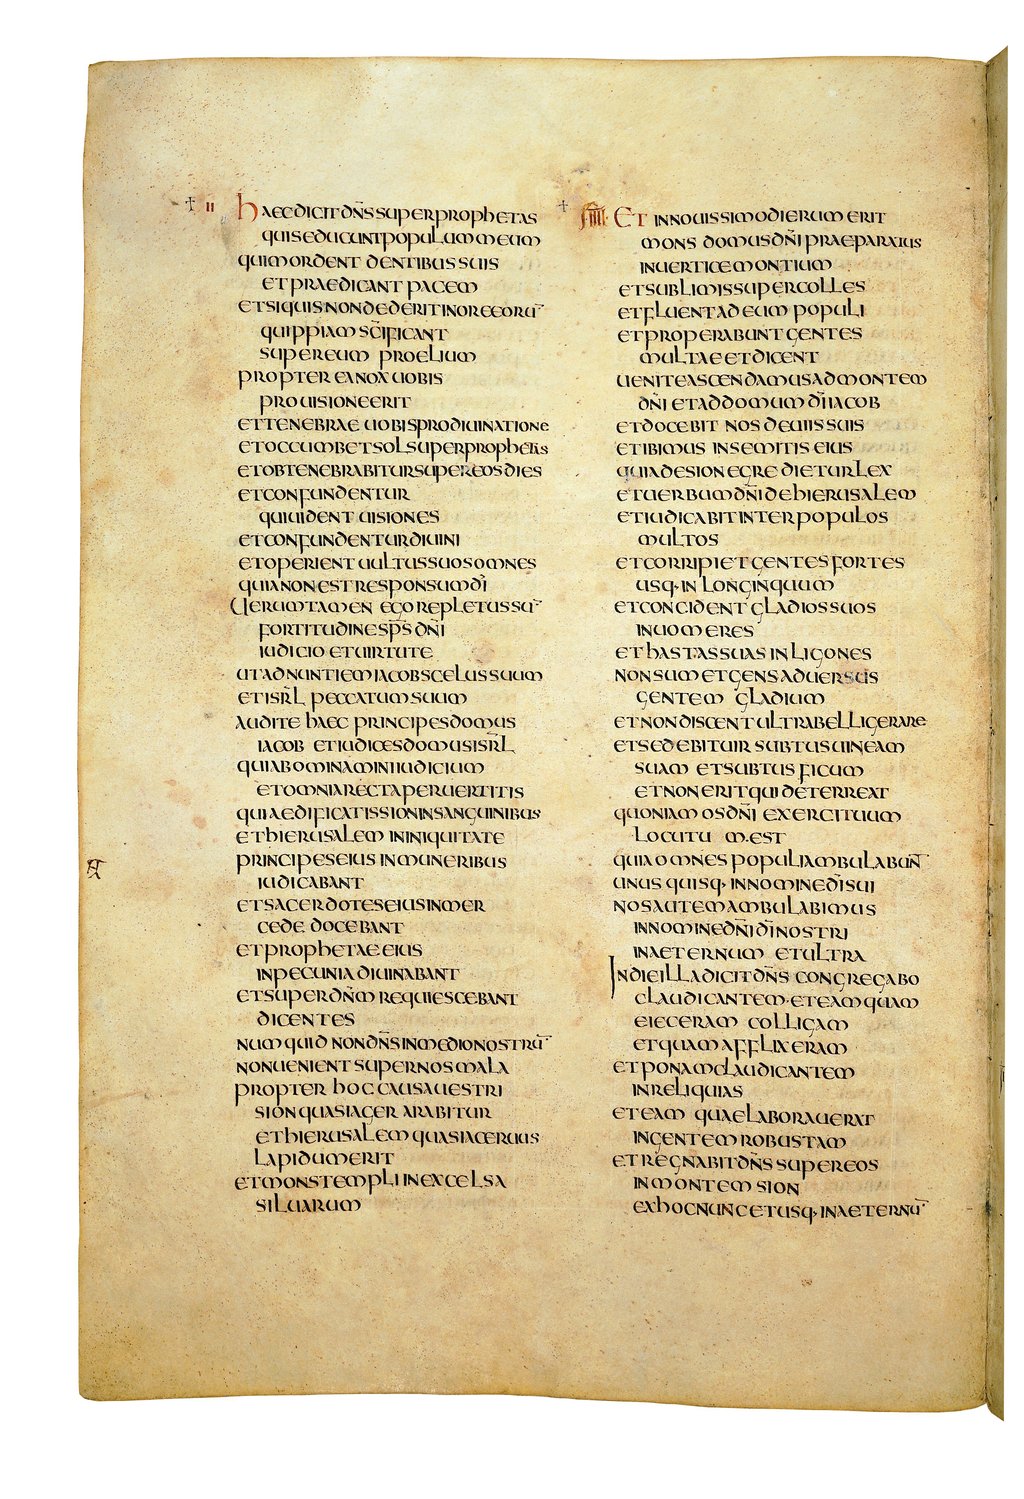 II
HAEC DICIT DN̄S SUPER PROPHETAS
QUI SEDUCUNT POPULUM MEUM
QUI MORDENT DENTIBUS SUIS
ET PRAEDICANT PACEM
ET SI QUIS NON DEDERIT IN ORE EORŪ
QUIPPIAM SC̄IFICANT
SUPER EUM PROELIUM
PROPTEREA NOX UOBIS
PRO UISIONE ERIT
ET TENEBRAE UOBIS PRO DIUINATIONE
ET OCCUMBET SOL SUPER PROPHETAS
ET OBTENEBRABITUR SUPER EOS DIES
ET CONFUNDENTUR
QUI UIDENT UISIONES
ET CONFUNDENTUR DIUINI
ET OPERIENT UULTUS SUOS OMNES
QUIA NON EST RESPONSUM DĪ
UERUMTAMEN EGO REPLETUS SŪ
FORTITUDINE SP̄S DN̄I
IUDICIO ET UIRTUTE
UT ADNUNTIEM IACOB SCELUS SUUM
ET ISRL̄ PECCATUM SUUM
AUDITE HAEC PRINCIPES DOMUS
IACOB ET IUDICES DOMUS ISRL̄
QUI ABOMINAMINI IUDICIUM
ET OMNIA RECTA PERUERTITIS
QUI AEDIFICATIS SION IN SANGUINIBUS
ET HIERUSALEM IN INIQUITATE
PRINCIPES EIUS IN MUNERIBUS
IUDICABANT
ET SACERDOTES EIUS IN MER
CEDE DOCEBANT
ET PROPHETAE EIUS
IN PECUNIA DIUINABANT
ET SUPER DN̄M REQUIESCEBANT
DICENTES
NUMQUID NON DN̄S IN MEDIO NOSTRŪ
NON UENIENT SUPER NOS MALA
PROPTER HOC CAUSA UESTRI
SION QUASI AGER ARABITUR
ET HIERUSALEM QUASI ACERUUS
LAPIDUM ERIT
ET MONS TEMPLI IN EXCELSA
SILUARUM
IIII ET IN NOUISSIMO DIERUM ERIT
MONS DOMUS DN̄I PRAEPARATUS
IN UERTICE MONTIUM
ET SUBLIMIS SUPER COLLES
ET FLUENT AD EUM POPULI
ET PROPERABUNT GENTES
MULTAE ET DICENT
UENITE ASCENDAMUS AD MONTEM
DN̄I ET AD DOMUM DĪ IACOB
ET DOCEBIT NOS DE UIIS SUIS
ET IBIMUS IN SEMITIS EIUS
QUIA DE SION EGREDIETUR LEX
ET UERBUM DN̄I DE HIERUSALEM
ET IUDICABIT INTER POPULOS
MULTOS
ET CORRIPIET GENTES FORTES
USQ· IN LONGINQUUM
ET CONCIDENT GLADIOS SUOS
IN UOMERES
ET HASTAS SUAS IN LIGONES
NON SUMET GENS ADUERSUS
GENTEM GLADIUM
ET NON DISCENT ULTRA BELLIGERARE
ET SEDEBIT UIR SUBTUS UINEAM
SUAM ET SUBTUS FICUM
ET NON ERIT QUI DETERREAT
QUONIAM OS DN̄I EXERCITUUM
LOCUTUM EST
QUIA OMNES POPULI AMBULABUN̄
UNUS QUISQ· IN NOMINE DĪ SUI
NOS AUTEM AMBULABIMUS
IN NOMINE DN̄I DĪ NOSTRI
IN AETERNUM ET ULTRA
IN DIE ILLA DICIT DN̄S CONGREGABO
CLAUDICANTEM· ET EAM QUAM
EIECERAM COLLIGAM
ET QUAM AFFLIXERAM
ET PONAM CLAUDICANTEM
IN RELIQUIAS
ET EAM QUAE LABORAUERAT
IN GENTEM ROBUSTAM
ET REGNABIT DN̄S SUPER EOS
IN MONTE SION
EX HOC NUNC ET USQ· IN AETERNŪ